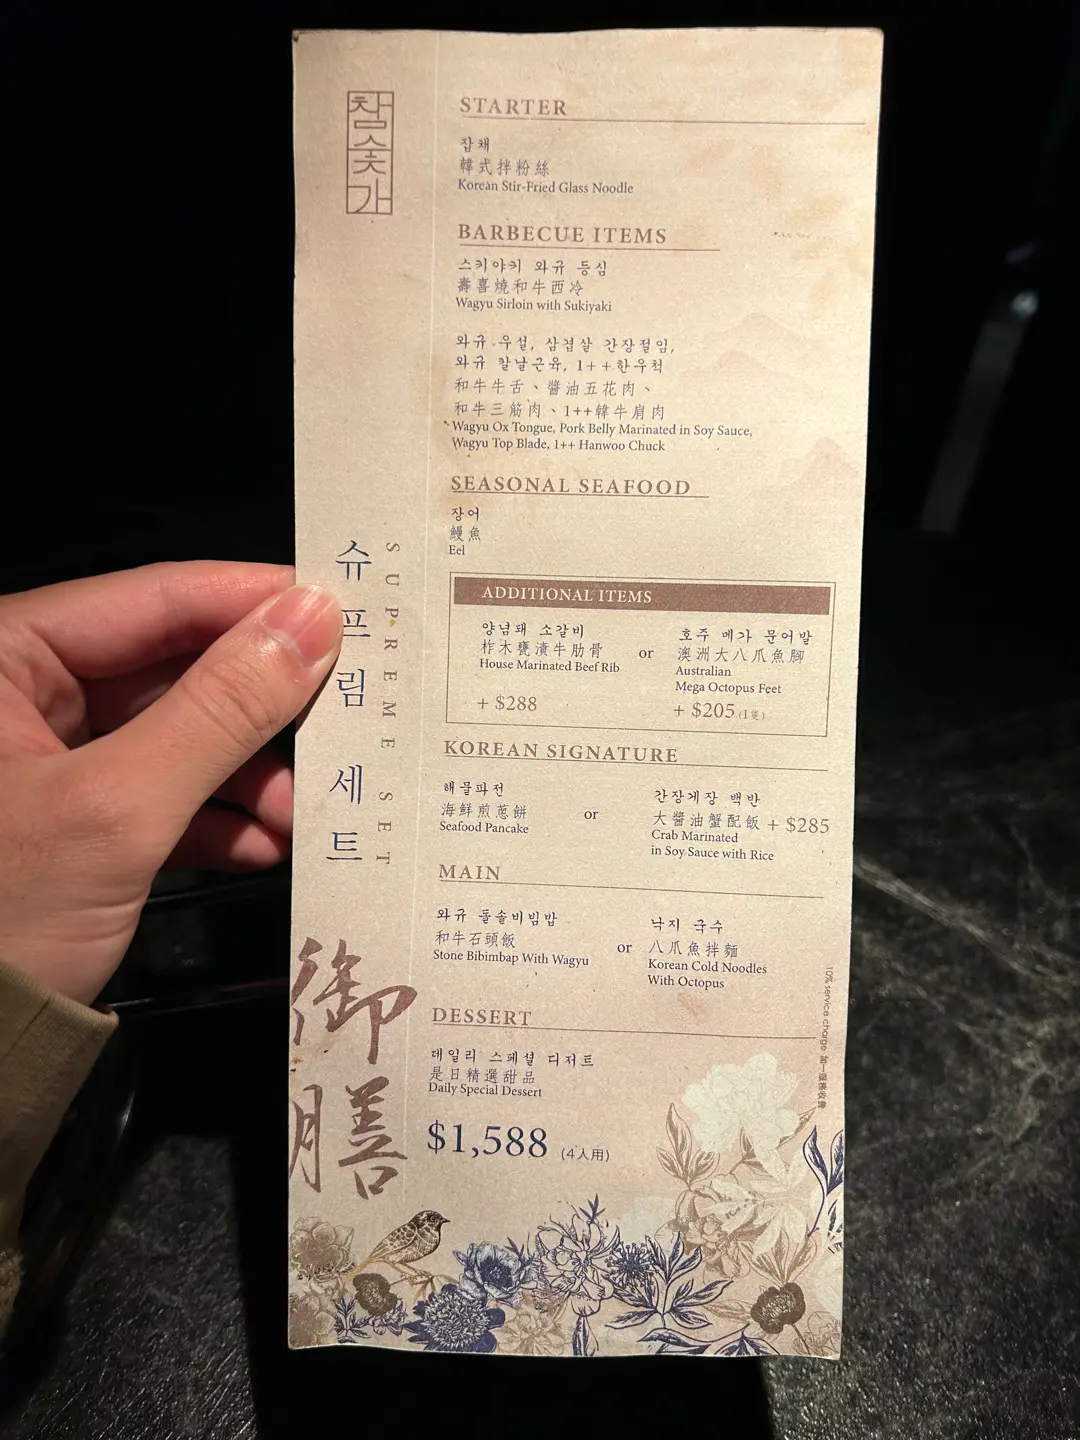 참숯가
슈프림 세트
SUPREME SET
御膳
STARTER
잡채
韓式拌粉絲
Korean Stir-Fried Glass Noodle
BARBECUE ITEMS
스키야키 와규 등심
壽喜燒和牛西冷
Wagyu Sirloin with Sukiyaki
와규 우설, 삼겹살 간장절임,
와규 칼날근육, 1++한우척
和牛牛舌、醬油五花肉、
和牛三筋肉、1++韓牛肩肉
Wagyu Ox Tongue, Pork Belly Marinated in Soy Sauce,
Wagyu Top Blade, 1++ Hanwoo Chuck
SEASONAL SEAFOOD
장어
鰻魚
Eel
ADDITIONAL ITEMS
양념돼 소갈비
柞木甕漬牛肋骨
House Marinated Beef Rib
+ $288
or
호주 메가 문어발
澳洲大八爪魚腳
Australian
Mega Octopus Feet
+ $205 (1隻)
KOREAN SIGNATURE
해물파전
海鮮煎蔥餅
Seafood Pancake
or
간장게장 백반
大醬油蟹配飯 + $285
Crab Marinated
in Soy Sauce with Rice
MAIN
와규 돌솥비빔밥
和牛石頭飯
Stone Bibimbap With Wagyu
or
낙지 국수
八爪魚拌麵
Korean Cold Noodles
With Octopus
DESSERT
데일리 스페셜 디저트
是日精選甜品
Daily Special Dessert
$1,588 (4人用)
10% service charge 加一服務收費